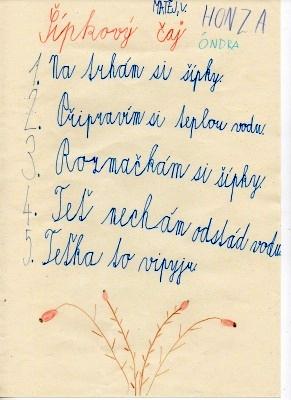 MATĚJ.V.
HONZA
ÓNDRA
Šípkový čaj
1. Na trhám si šípky.
2. Připravím si teplou vodu.
3. Rozmačkám si šípky.
4. Teť nechám odstád vodu.
5. Teťka to vipyju.